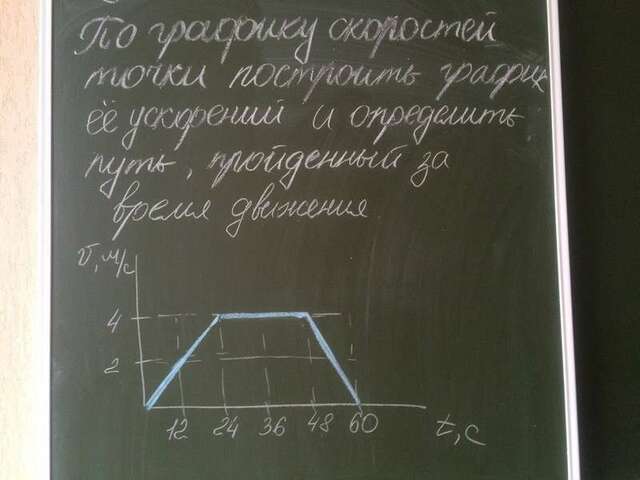 По графику скоростей
точки построить график
её ускорений и определить
путь, пройденный за
время движения
v, м/с
4
2
12 24 36 48 60 t, c